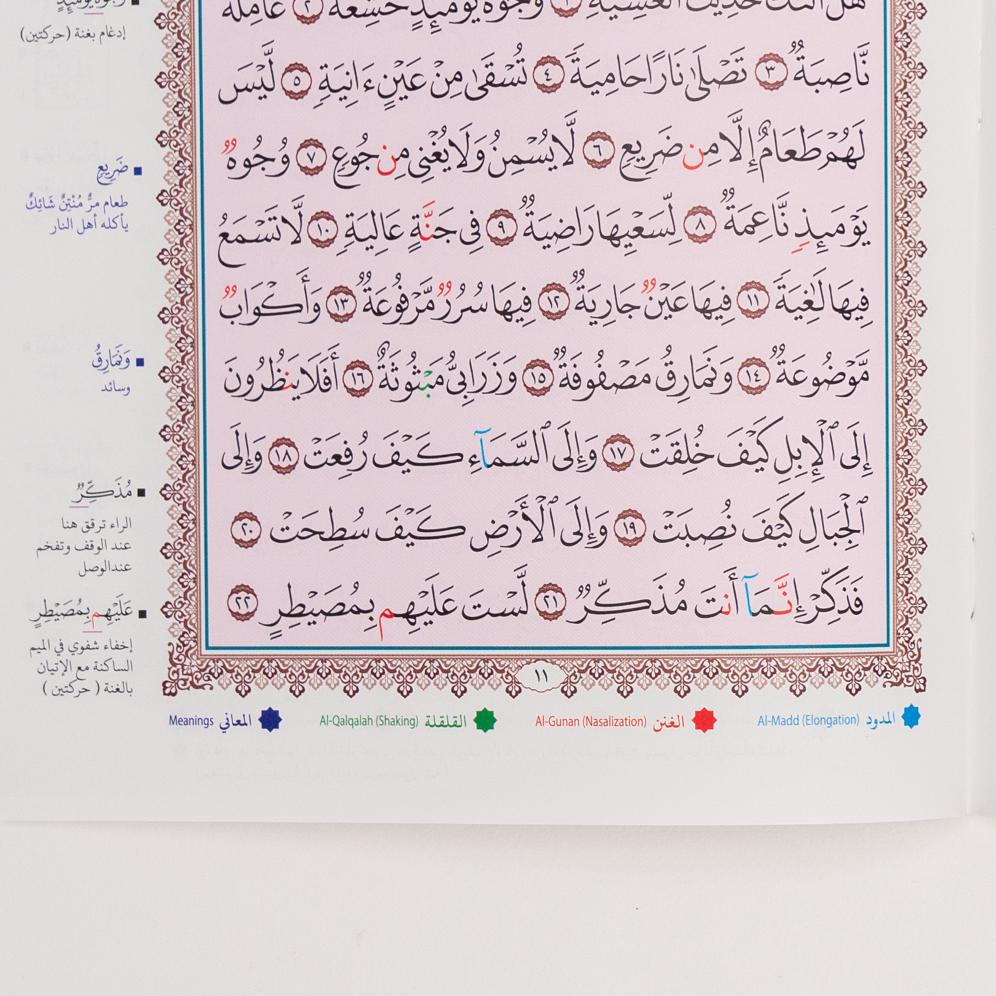 هَلْ أَتَىٰكَ حَدِيثُ ٱلْغَٰشِيَةِ ١ وُجُوهٌ يَوْمَئِذٍ خَٰشِعَةٌ ٢ عَامِلَةٌ
نَّاصِبَةٌ ٣ تَصْلَىٰ نَارًا حَامِيَةً ٤ تُسْقَىٰ مِنْ عَيْنٍ ءَانِيَةٍ ٥ لَّيْسَ
لَهُمْ طَعَامٌ إِلَّا مِن ضَرِيعٍ ٦ لَّا يُسْمِنُ وَلَا يُغْنِى مِن جُوعٍ ٧ وُجُوهٌ
يَوْمَئِذٍ نَّاعِمَةٌ ٨ لِّسَعْيِهَا رَاضِيَةٌ ٩ فِى جَنَّةٍ عَالِيَةٍ ١٠ لَّا تَسْمَعُ
فِيهَا لَٰغِيَةً ١١ فِيهَا عَيْنٌ جَارِيَةٌ ١٢ فِيهَا سُرُرٌ مَّرْفُوعَةٌ ١٣ وَأَكْوَابٌ
مَّوْضُوعَةٌ ١٤ وَنَمَارِقُ مَصْفُوفَةٌ ١٥ وَزَرَابِىُّ مَبْثُوثَةٌ ١٦ أَفَلَا يَنظُرُونَ
إِلَى ٱلْإِبِلِ كَيْفَ خُلِقَتْ ١٧ وَإِلَى ٱلسَّمَآءِ كَيْفَ رُفِعَتْ ١٨ وَإِلَى
ٱلْجِبَالِ كَيْفَ نُصِبَتْ ١٩ وَإِلَى ٱلْأَرْضِ كَيْفَ سُطِحَتْ ٢٠
فَذَكِّرْ إِنَّمَآ أَنتَ مُذَكِّرٌ ٢١ لَّسْتَ عَلَيْهِم بِمُصَيْطِرٍ ٢٢
١١
وُجُوهٌ يَوْمَئِذٍ
إدغام بغنة (حركتين)
ضَرِيعٍ
طعام مرٌّ مُنْتِنٌ شَائِكٌ
يأكله أهل النار
وَنَمَارِقُ
وسائد
مُذَكِّرٌ
الراء ترقق هنا
عند الوقف وتفخم
عندالوصل
عَلَيْهِم بِمُصَيْطِرٍ
إخفاء شفوي في الميم
الساكنة مع الإتيان
بالغنة ( حركتين )
المدود Al-Madd (Elongation)
الغنن Al-Gunan (Nasalization)
القلقلة Al-Qalqalah (Shaking)
المعاني Meanings